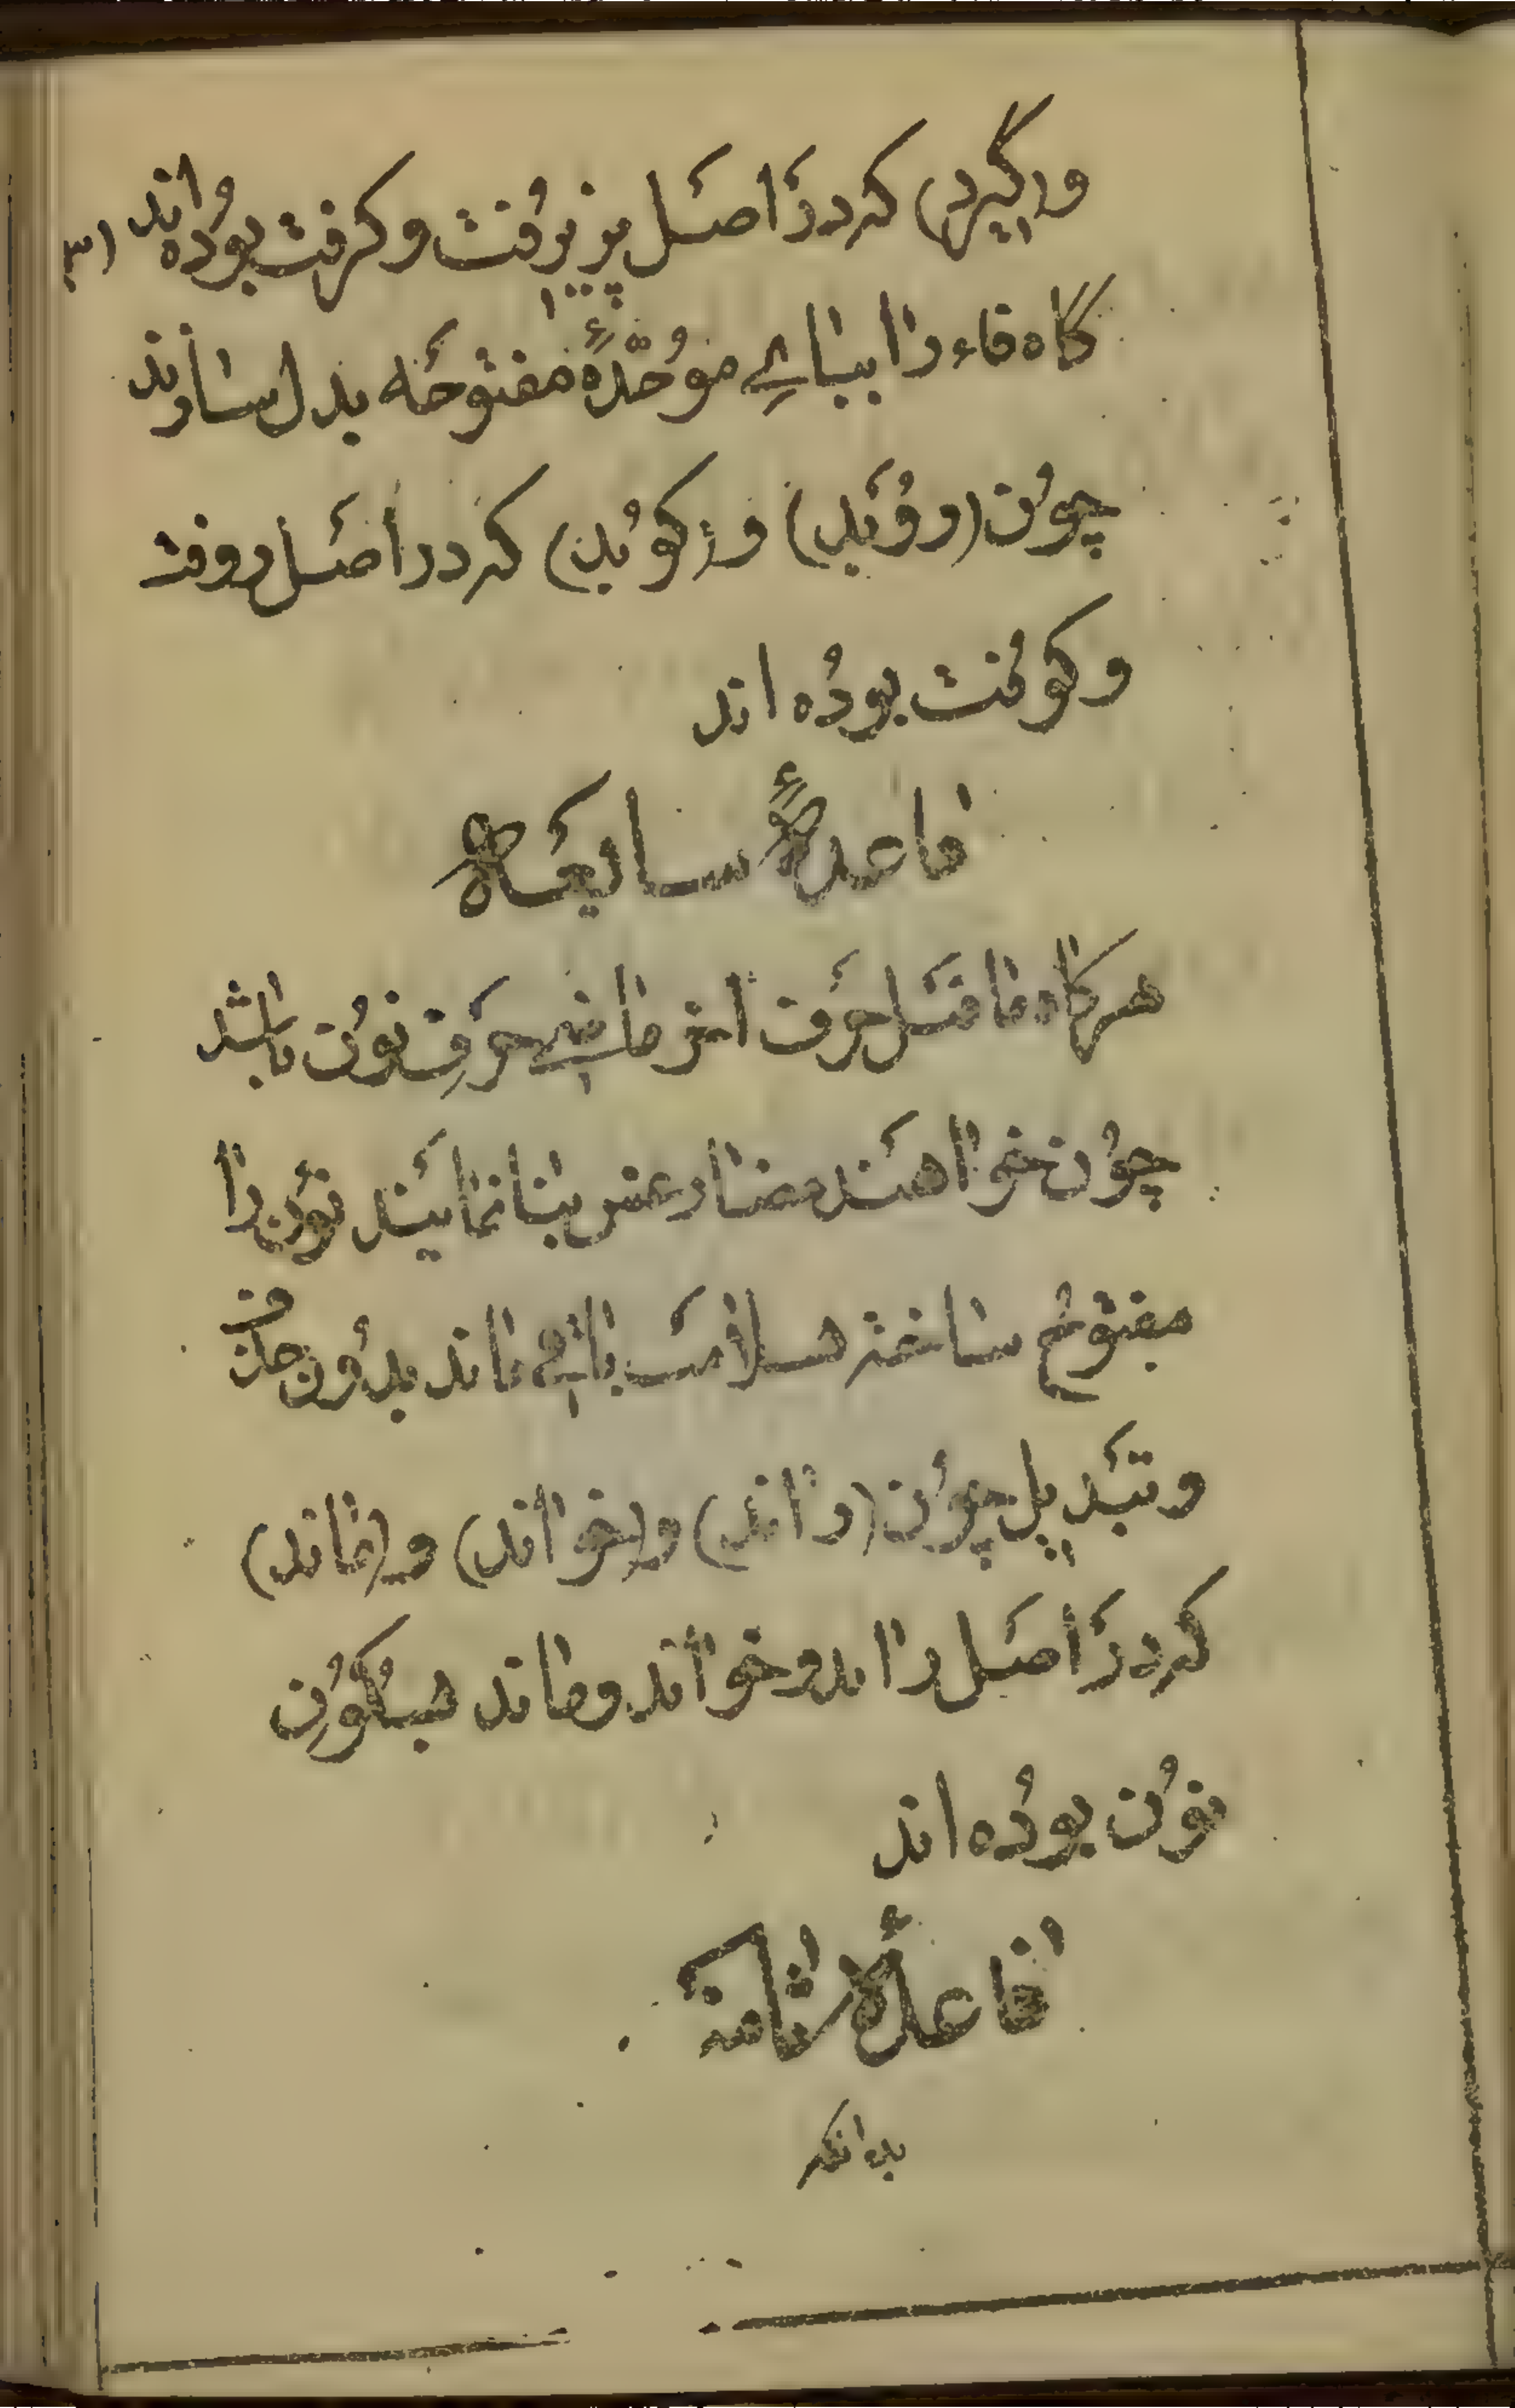 و(گیرد) که در اصل پزیرفت و گرفت بوده‌اند (۳)
گاه فاء را ببای موحّدهٔ مفتوحه بدل سازند
چون (روبد) و (کوبد) که در اصل روفت
و کوفت بوده اند
قاعدهٔ سابعه
هرگاه ماقبل حرف اخر ماضی حرف نون باشد
چون خواهند مضارعش بنا نمایند نون را
مفتوح ساخته سلامت باقی ماند بدون حذف
و تبدیل چون (راند) و (خواند) و (ماند)
که در اصل راند و خواند و ماند بسکون
نون بوده اند
قاعدهٔ ثامنه
بدانکه